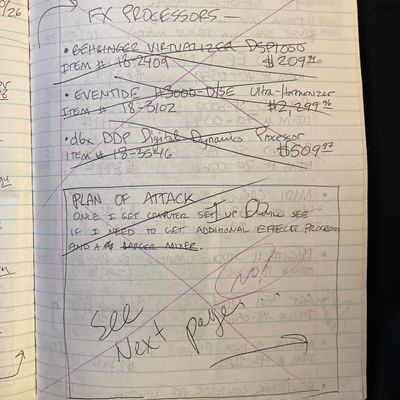 FX PROCESSORS —
• BEHRINGER VIRTUALIZER DSP1000
ITEM # 18-2409 $209
• EVENTIDE H3000-D/SE Ultra-Harmonizer
ITEM # 18-3102 $2,299.96
• dbx DDP Digital Dynamics Processor
ITEM # 18-3546 $509.97
PLAN OF ATTACK
ONCE I GET COMPUTER SET UP SEE
IF I NEED TO GET ADDITIONAL EFFECTS PROCESSORS
AND A LARGER MIXER.
NO!
See
Next pages...